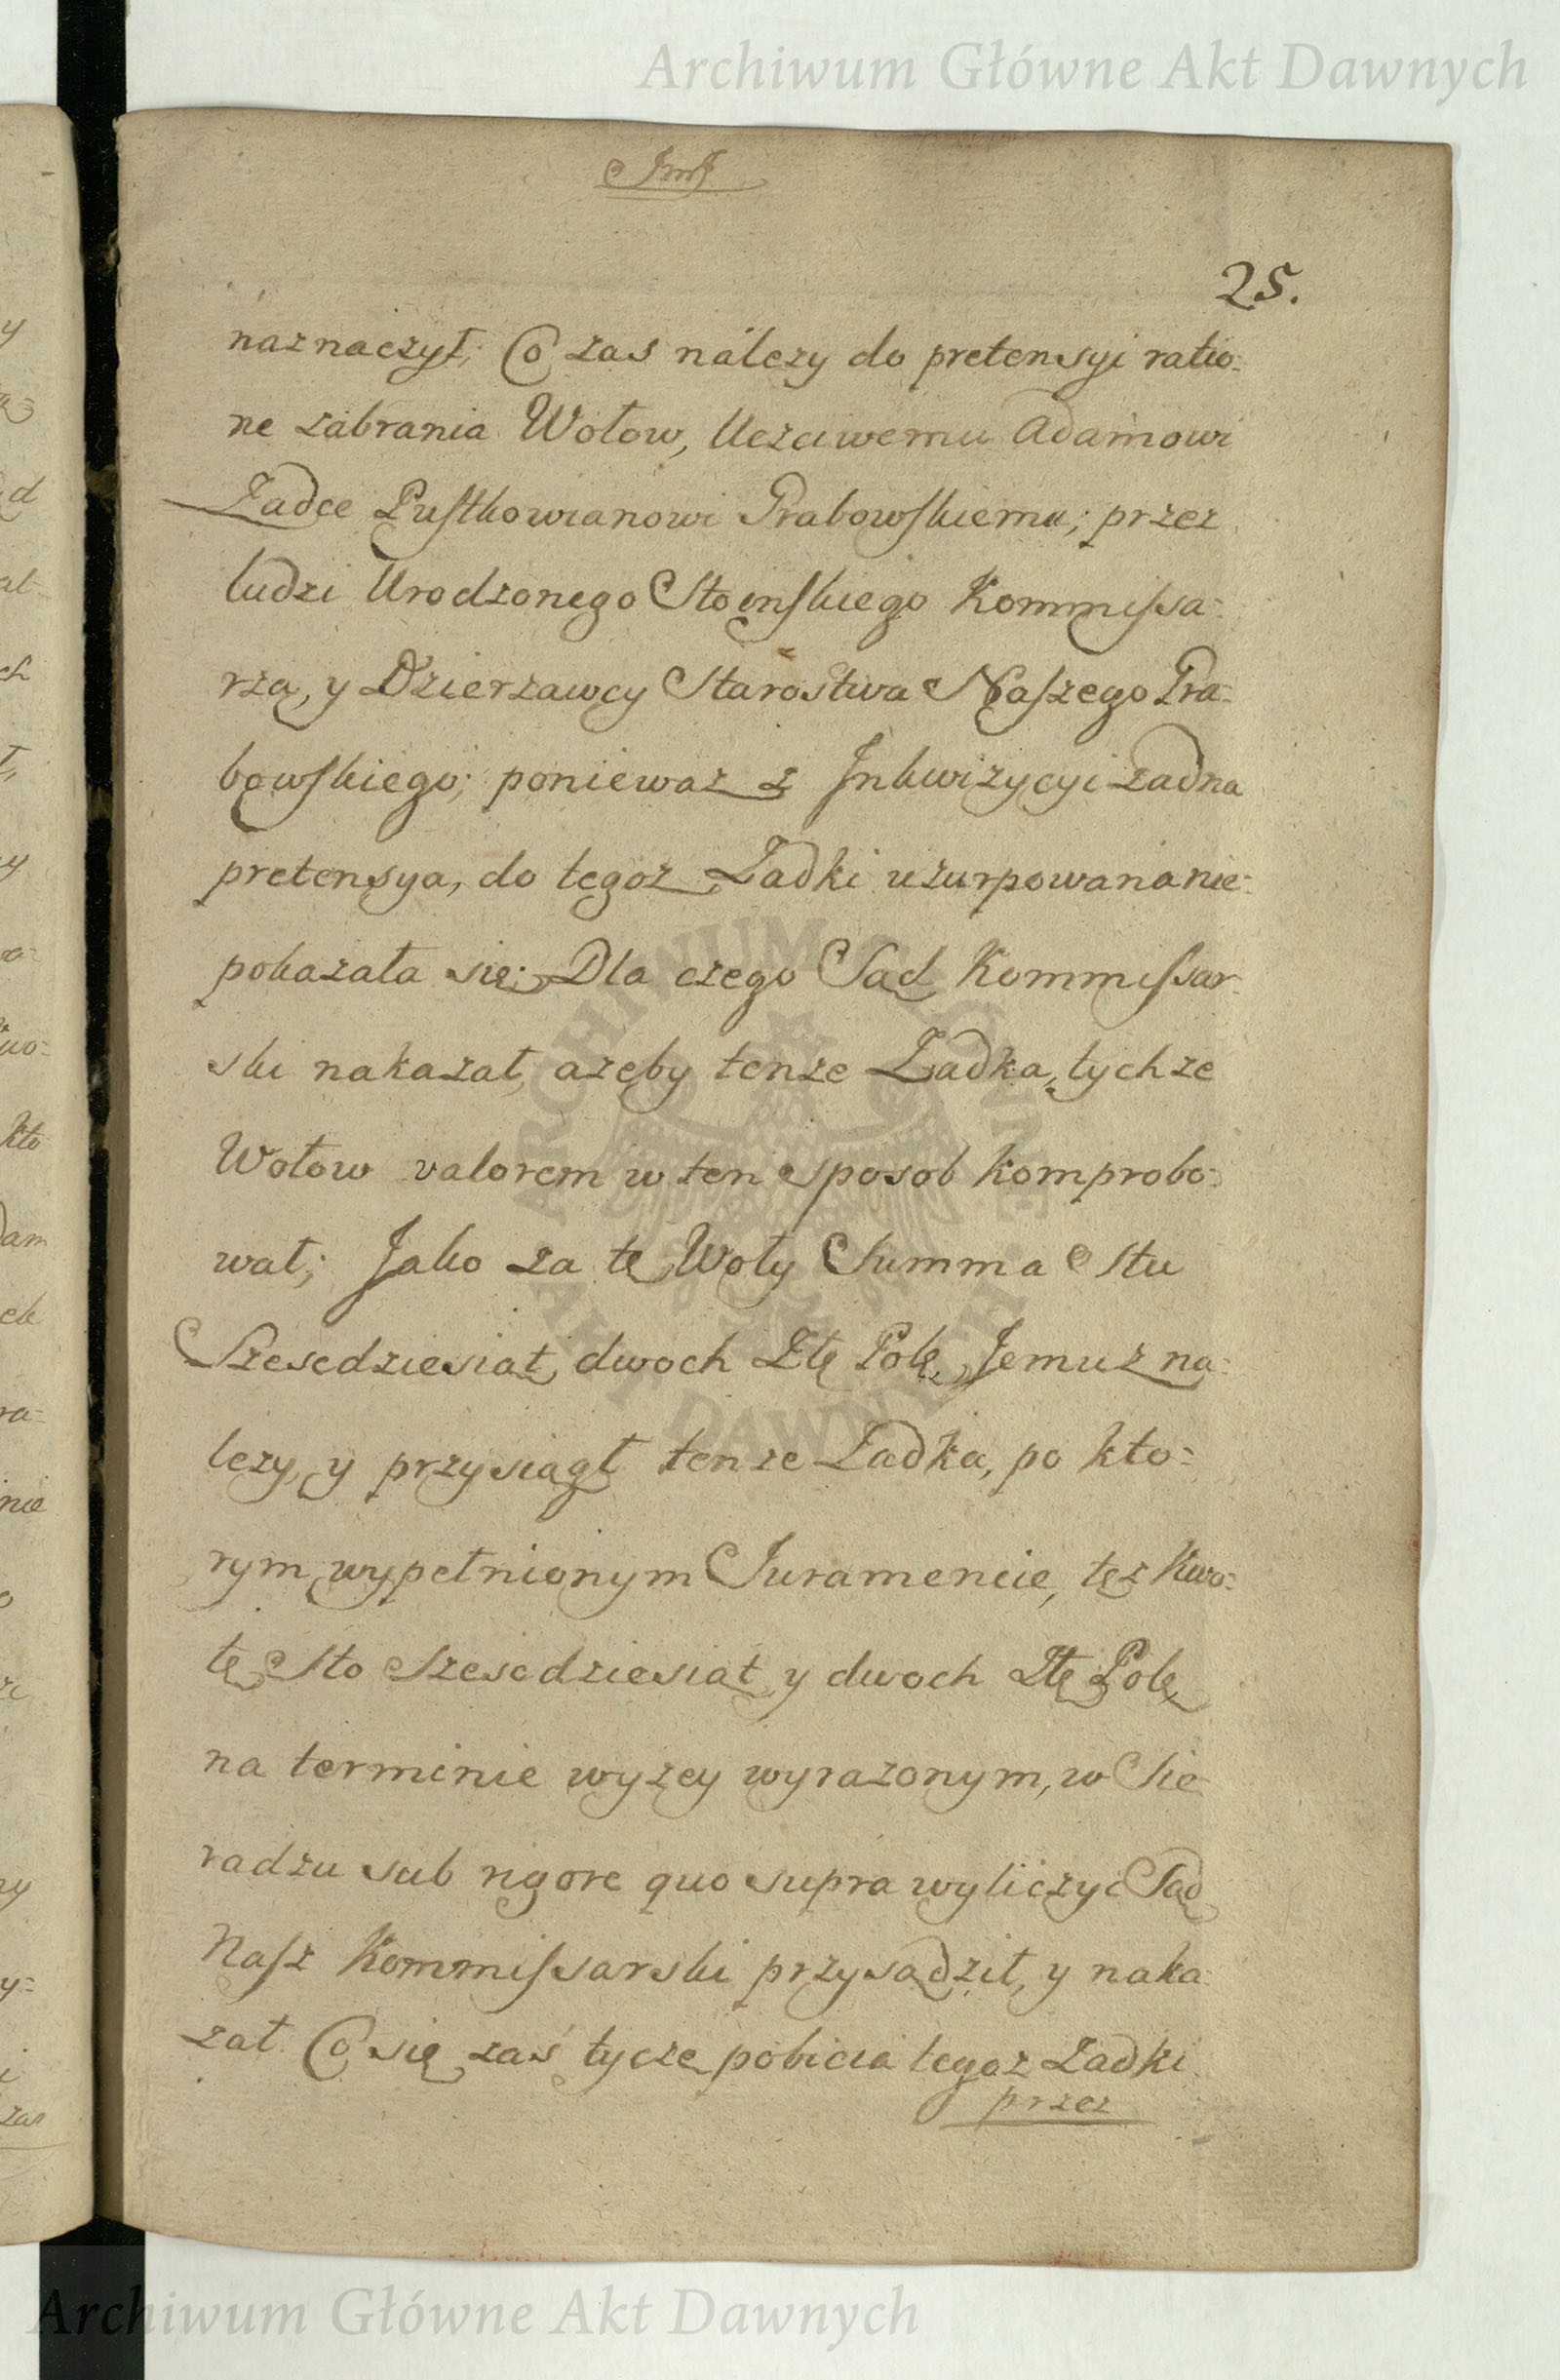 Archiwum Główne Akt Dawnych
25.
naznaczył; Co zas należy do pretensyi ratio-
ne zabrania Wołow, Uczciwemu Adamowi
Zadce Pustkowianowi Grabowskiemu; przez
ludzi Urodzonego Stoinskiego Kommissa-
rza, y Dzierzawcy Starostwa Naszego Gra-
bowskiego; poniewaz z Inkwizycyi zadna
pretensya, do tegoz Zadki uzurpowana nie-
pokazała się; Dla czego Sąd Kommissar-
ski nakazał, azeby tenze Zadka, tychze
Wołow valorem w ten sposob komprobo-
wał; Jako za te Woły Summa Stu
Szescdziesiąt dwoch Złł Poll Jemuz na-
lezy, y przysiągł tenze Zadka, po kto-
rym wypełnionym Juramencie, tęz Kwo-
tę Sto Szescdziesiąt y dwoch Złł Poll
na terminie wyzey wyrazonym, w Sie
radzu sub rigore quo supra wyliczyć Sąd
Nasz Kommissarski przysądził, y naka-
zał. Co się zaś tycze pobicia tegoz Zadki
przez
ARCHIWUM GŁÓWNE AKT DAWNYCH
Archiwum Główne Akt Dawnych